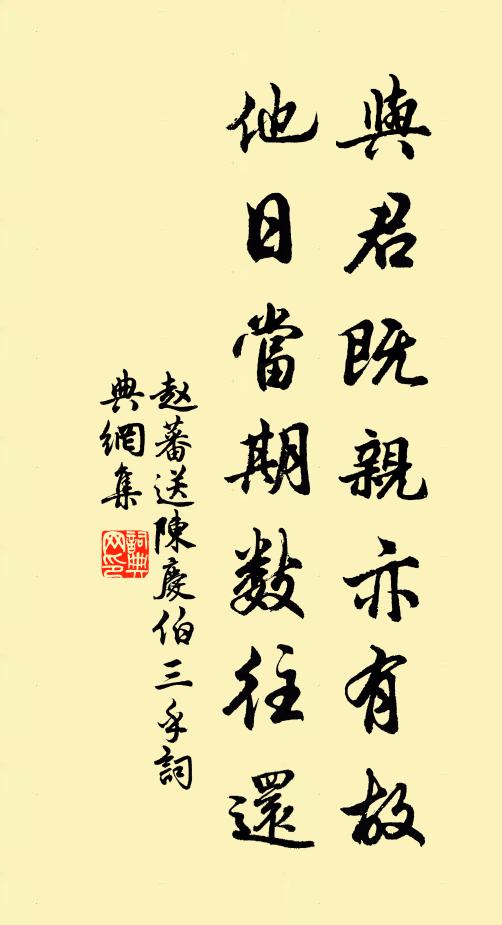 與君既親亦有故
他日當期數往還
赵蕃送陳慶伯三手詞
典網集
詞典网印